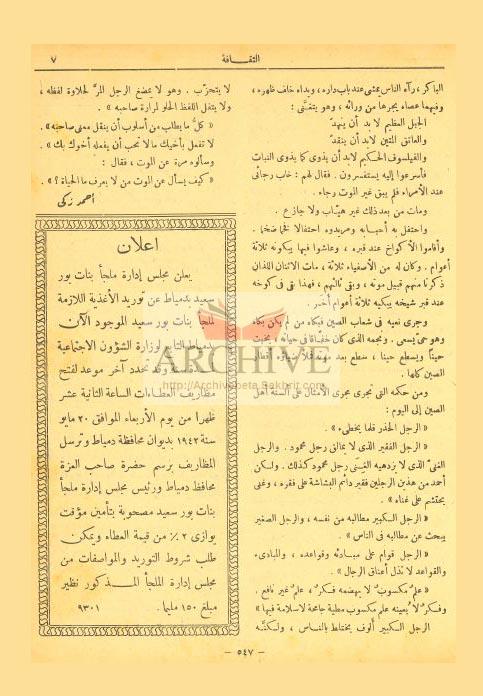 ٧
الثقافة
الباكر، رآه الناس يمشي عند باب داره، ويداه خلف ظهره،
وفيهما عصاه يجرها من ورائه، وهو يتغنى:
الجبل العظيم لا بد أن ينهدّ
والعاتق المتين لابد أن ينقد
والفيلسوف الحكيم لابد أن يذوى كما يذوى النبات
فأسرعوا إليه يستفسرون. فقال لهم: خاب رجائي
عند الأمراء فلم يبق غير الموت رجاء.
ومات من بعد ذلك غير هيّاب ولا جازع.
واحتفل به أحبابه ومريدوه احتفالا فخما ضخما.
وأقاموا الأكواخ عند قبره، وعاشوا فيها يبكونه ثلاثة
أعوام. وكان له من الأصفياء ثلاثة، مات الاثنان اللذان
ذكرنا منهم قبيل موته، وبقي ثالثهم، فهذا بقى فى كوخه
عند قبر شيخه يبكيه ثلاثة أعوام أخر.
وجرى نعيه فى شعاب الصين فبكاه من لم يكن بكاه
وهو حيّ يسعى. ونجمه الذى كان خفّاقا فى حياته، يخبت
حيناً ويسطع حينا، سطع بعد موته فملأ سناؤه أقطار
الصين كلها.
ومن حكمه التى تجرى مجرى الأمثال على ألسنة أهل
الصين إلى اليوم:
« الرجل الحذر قلما يخطىء ».
« الرجل الفقير الذى لا يمالق رجل محمود. والرجل
الغنىّ الذى لا يزدهيه الغِنَى رجل محمود كذلك. ولكن
أحمد من هذين الرجلين فقير دائم البشاشة على فقره، وغنى
يحتشم على غناه ».
« الرجل الكبير مطالبه من نفسه، والرجل الصغير
يبحث عن مطالبه فى الناس ».
« الرجل قوام على مبادئه وقواعده، والمبادىء
والقواعد لا تذل أعناق الرجال ».
« علم مكسوب لا يهضمه فكر، علم غير نافع.
وفكر لا يُعينه علم مكسوب مطية جامحة لا سلامة فيها »
الرجل الكبير ألوف يختلط بالناس، ولكنّه
لا يتحزّب. وهو لا يمضغ الرجل المرّ لحلاوة لفظه،
ولا يتفل اللفظ الحلو لمرارة صاحبه ».
« كلُّ ما يطلب من أسلوب أن ينقل معنى صاحبه ».
لا تفعل بأخيك ما لا تحب أن يفعله أخوك بك ».
وسألوه مرة عن الموت، فقال:
« كيف يسأل عن الموت من لا يعرف ما الحياة؟ ».
أحمد زكى
اعلان
يعلن مجلس إدارة ملجأ بنات بور
سعيد بدمياط عن توريد الأغذية اللازمة
لملجأ بنات بور سعيد الموجود الآن
بدمياط التابع لوزارة الشؤون الاجتماعية
وقد تحدد آخر موعد لفتح
مظاريف العطاءات الساعة الثانية عشر
ظهرا من يوم الأربعاء الموافق ٢٠ مايو
سنة ١٩٤٢ بديوان محافظة دمياط وترسل
المظاريف برسم حضرة صاحب العزة
محافظ دمياط ورئيس مجلس إدارة ملجأ
بنات بور سعيد مصحوبة بتأمين مؤقت
يوازى ٢ ٪ من قيمة العطاء ويمكن
طلب شروط التوريد والمواصفات من
مجلس إدارة الملجأ المذكور نظير
مبلغ ١٥٠ مليما. ٩٣٠١
ARCHIVE
http://Archivebeta.Sakhrit.com
— ٥٤٧ —